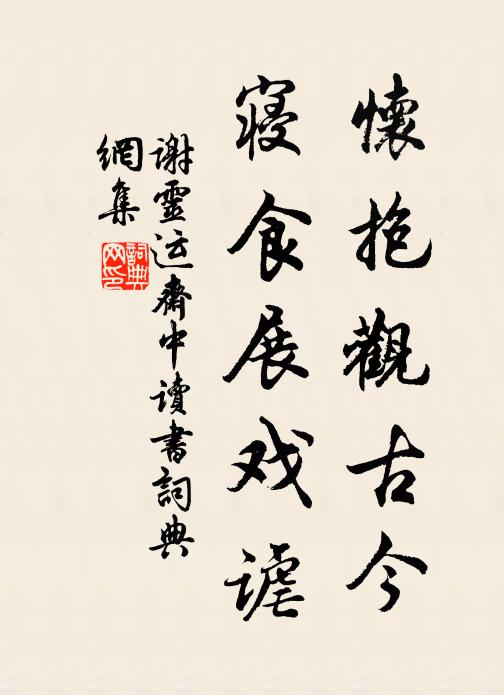 懷抱觀古今
寢食展戏謔
謝靈运齋中讀書詞典
網集
詞典网印